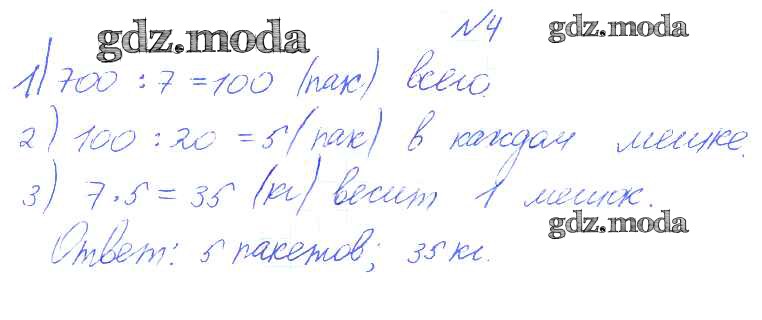 gdz.moda №4 gdz.moda
1) 700 : 7 = 100 (пак) всего.
2) 100 : 20 = 5 (пак) в каждом мешке.
3) 7 · 5 = 35 (кг) весит 1 мешок.
gdz.moda
Ответ: 5 пакетов; 35 кг.